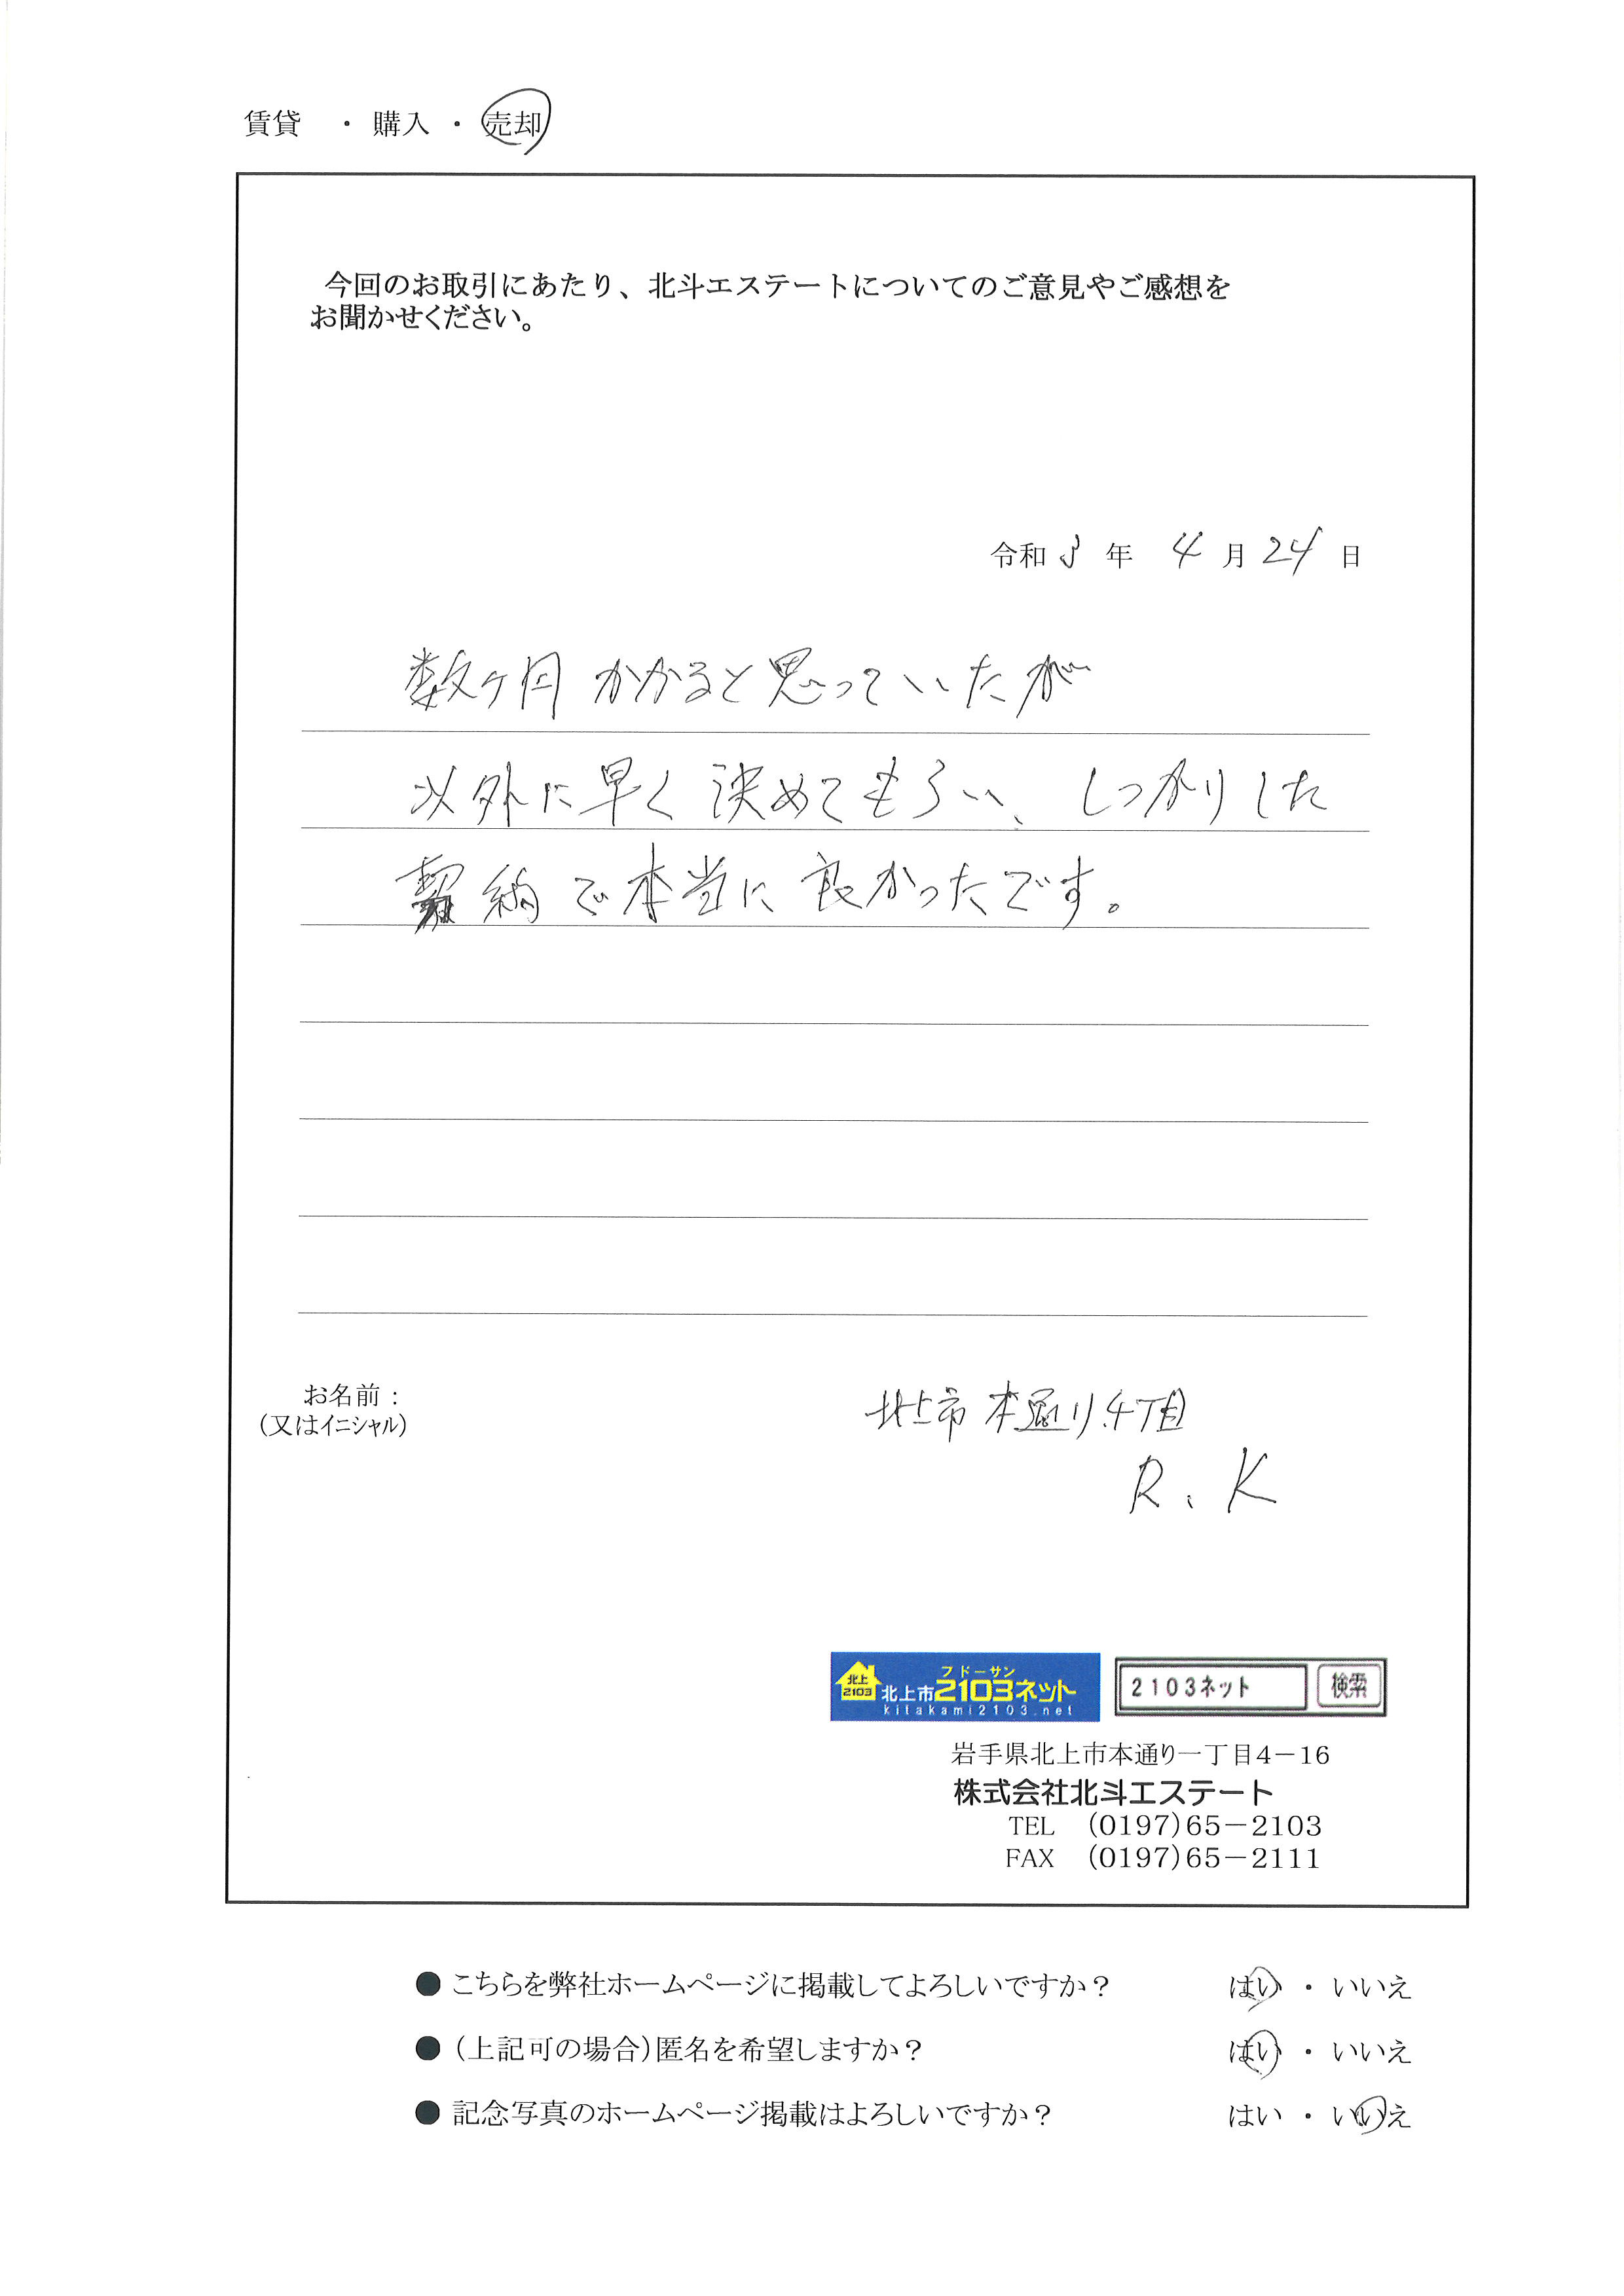 賃貸 ・ 購入 ・ 売却
今回のお取引にあたり、北斗エステートについてのご意見やご感想を
お聞かせください。
令和 3 年 4 月 24 日
数ヶ月かかると思っていたが
以外に早く決めてもらい、しっかりした
契約で本当に良かったです。
お名前：
（又はイニシャル）
北上市本通り4丁目
R.K
北上
2103
フドーサン
北上市2103ネット
kitakami2103.net
2103ネット 検索
岩手県北上市本通り一丁目4－16
株式会社北斗エステート
TEL （0197）65－2103
FAX （0197）65－2111
●こちらを弊社ホームページに掲載してよろしいですか？ はい ・ いいえ
●（上記可の場合）匿名を希望しますか？ はい ・ いいえ
●記念写真のホームページ掲載はよろしいですか？ はい ・ いいえ